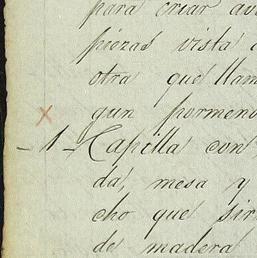 para criar av
piezas vista a
otra que llam
gun pormeno
-1- Capilla con
da, mesa y
cho que sir
de madera